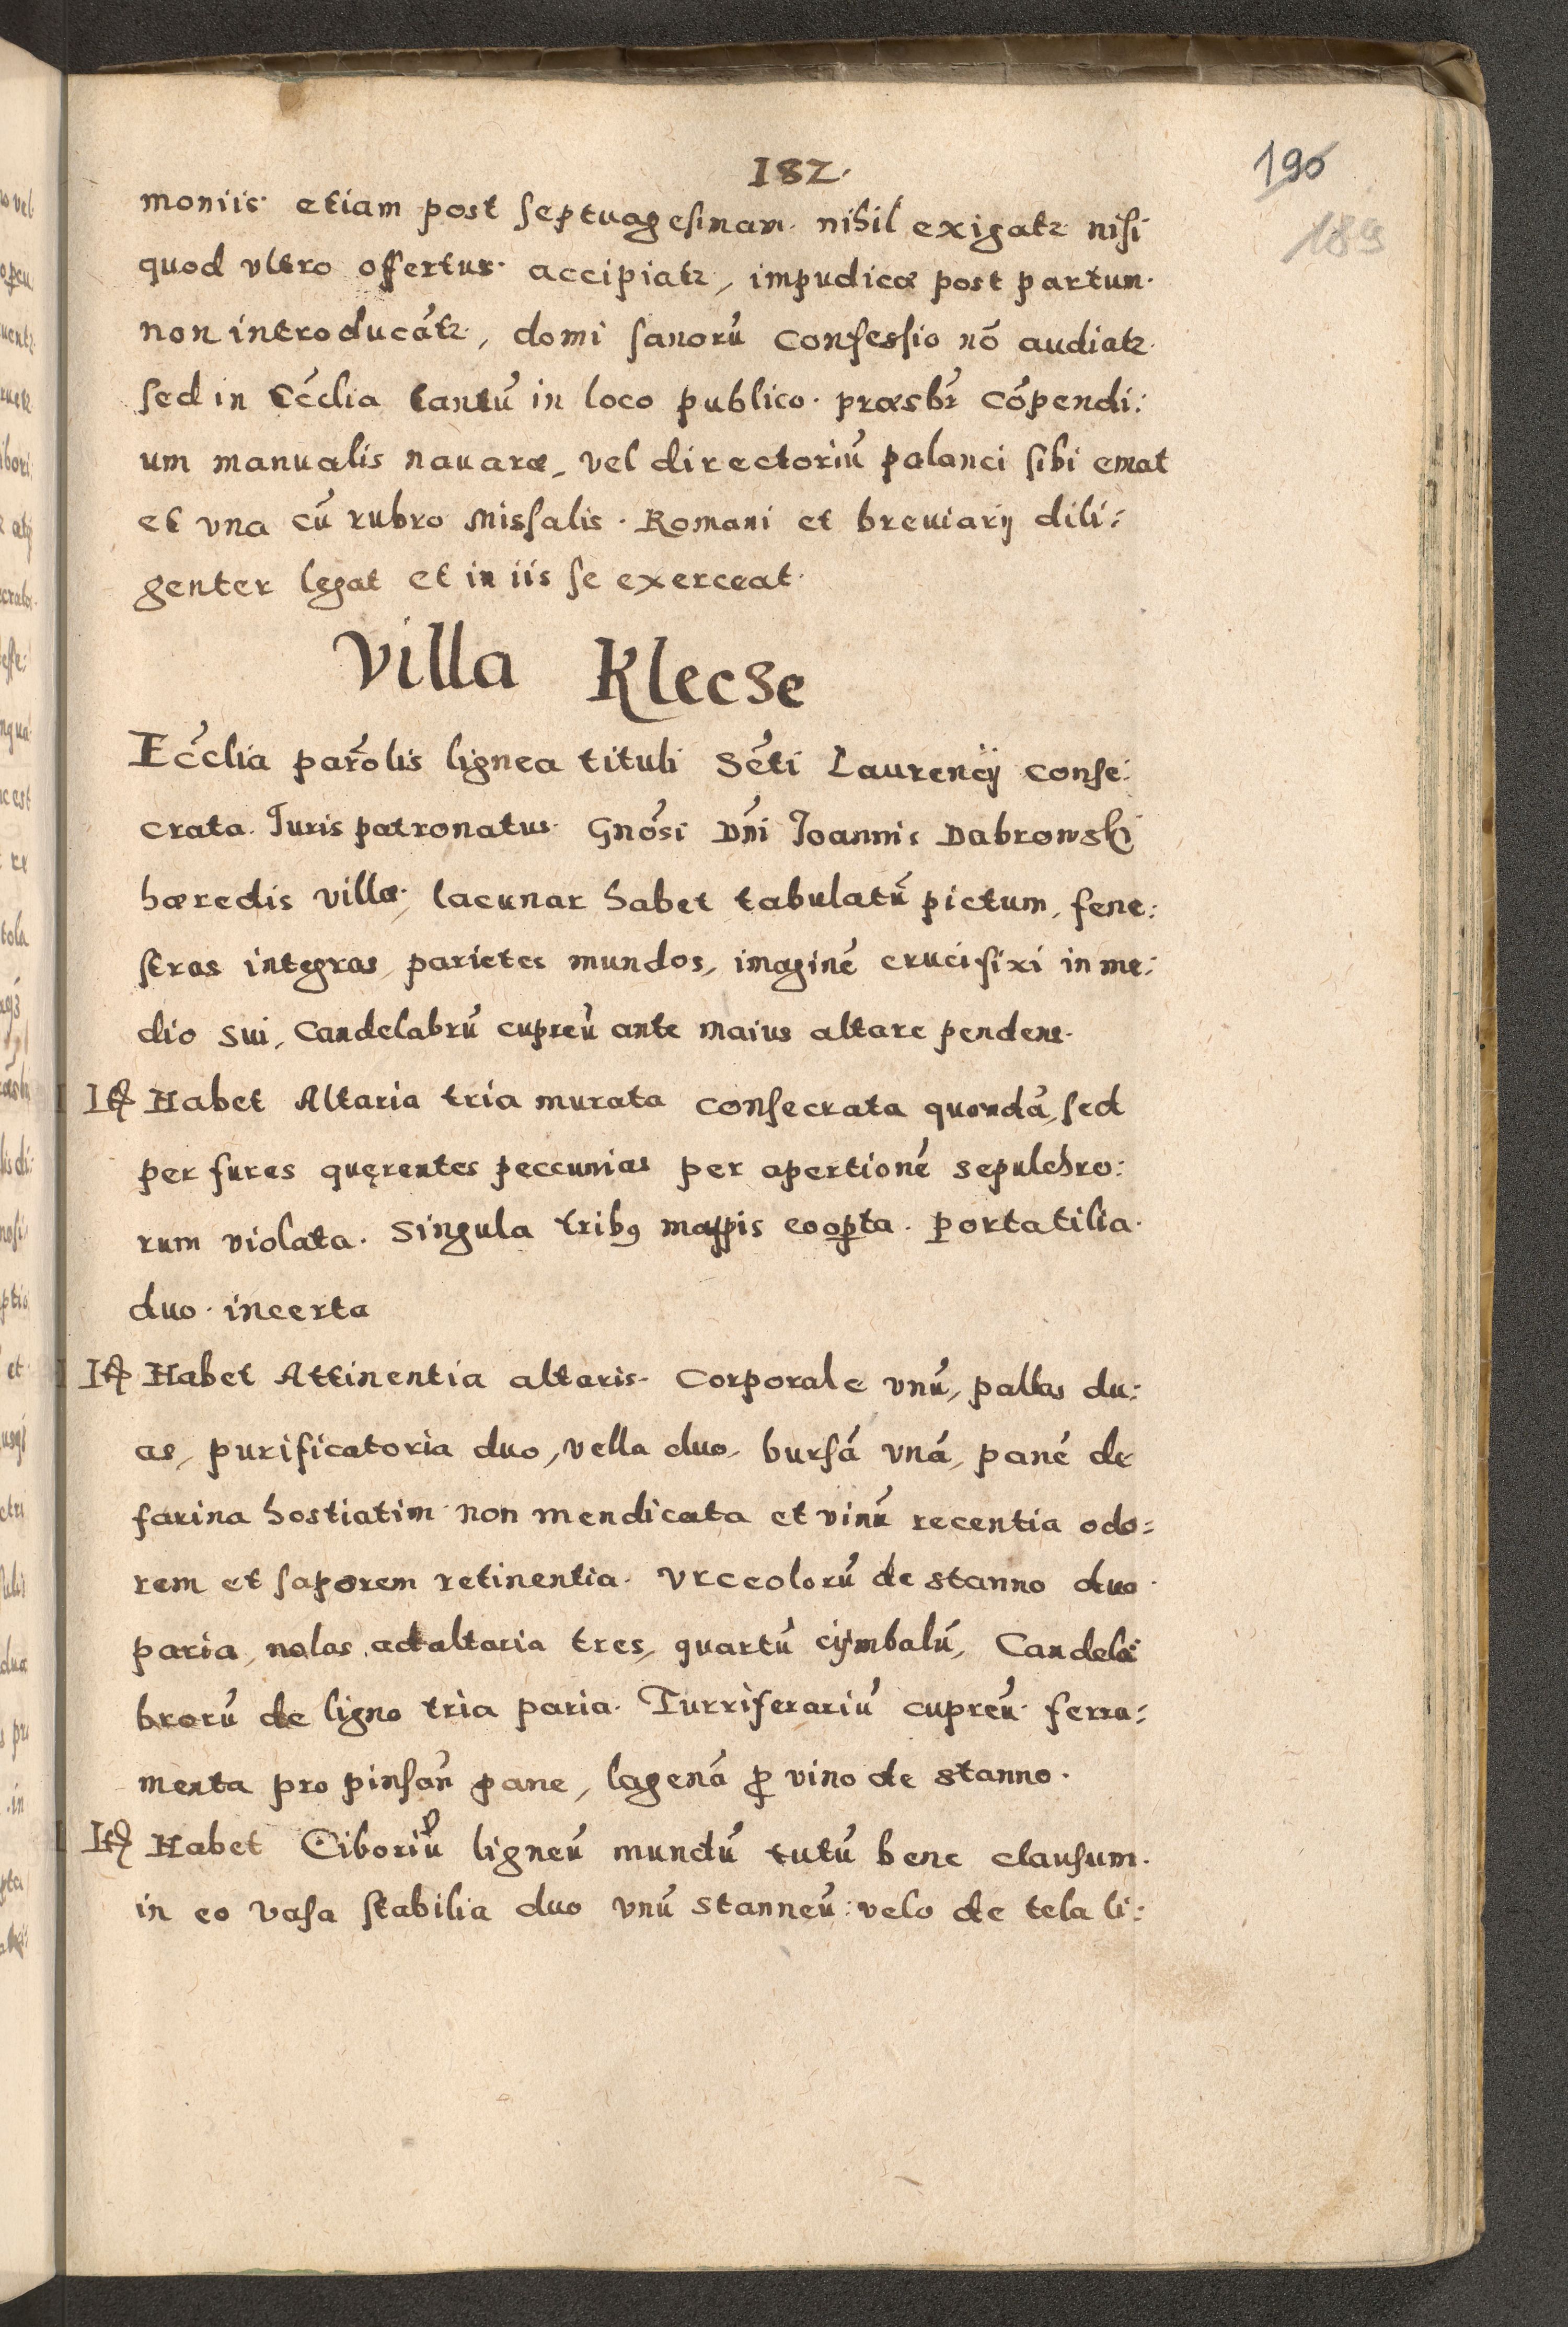 182.
190
189
moniis etiam post septuagesimam. nihil exigatr nisi
quod vltro offertur. accipiatr, impudicæ post partum.
non introducātr, domi sanorū confessio nō audiatr.
sed in Eccīlia tantū in loco publico. præsbr̄ cōpendi:
um manualis nauaræ, vel directoriū polanci sibi emat
et vna cū rubro Missalis. Romani et breuiarij dili:
genter legat et in iis se exerceat.
Villa Klecse
Eccīlia parōlis lignea tituli Scti Laurencij conse:
crata. Juris patronatus. Gnōsi Dn̄i Joannis Dabrowski
hæredis villæ, lacunar habet tabulatū pictum, fene:
stras integras, parietes mundos, imaginē crucifixi in me:
dio sui, Candelabrū cupreū ante maius altare pendens.
It Habet Altaria tria murata consecrata quondā, sed
per fures quęrentes peccunias per apertionē sepulchro:
rum violata. Singula tribꝯ mappis coopta. Portatilia.
duo. incerta
It Habet Attinentia altaris. Corporale vnū, pallas du:
as, purificatoria duo, vella duo, bursā vnā, panē de
farina hostiatim non mendicata et vinū recentia odo:
rem et saporem retinentia. Vrceolorū de stanno duo.
paria, nolas ad altaria tres, quartū cijmbalū, Candela
brorū de ligno tria paria. Turriferariū cupreū. ferra:
menta pro pinsan̄ pane, lagenā ꝓ vino de stanno.
It Habet Ciboriū ligneū mundū tutū bene clausum.
in eo vasa stabilia duo vnū stanneū: velo de tela li: